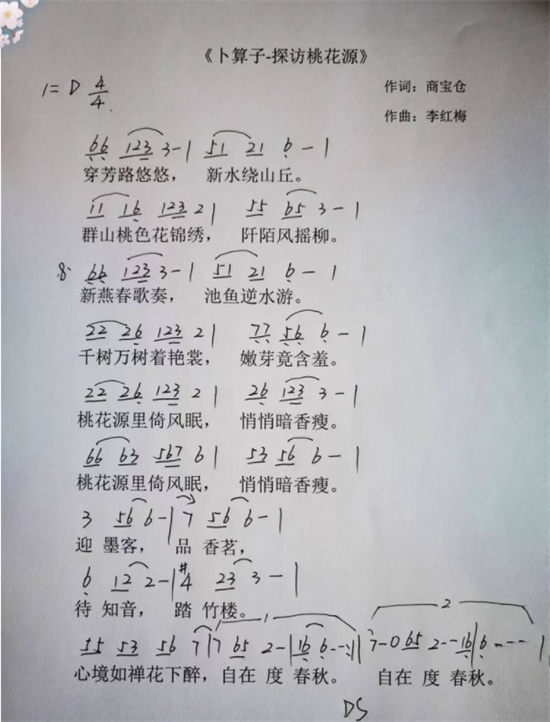 《卜算子-探访桃花源》
1=D 4/4
作词：商宝仓
作曲：李红梅
66 123 3-| 51 21 6-|
穿芳路悠悠， 新水绕山丘。
11 16 123 2| 55 65 3-|
群山桃色花锦绣， 阡陌风摇柳。
66 123 3-| 51 21 6-|
新燕春歌奏， 池鱼逆水游。
22 26 123 2| 77 56 6-|
千树万树着艳裳， 嫩芽竟含羞。
22 26 123 2| 26 123 3-|
桃花源里倚风眠， 悄悄暗香瘦。
66 63 567 6| 53 56 6-|
桃花源里倚风眠， 悄悄暗香瘦。
3 56 6-|7 56 6-|
迎 墨客， 品 香茗，
6 12 2-|#4 23 3-|
待 知音， 踏 竹楼。
1 2
55 53 56 7|7 65 2-|16 6---:|7-0 65 2--16|6---|
心境如禅花下醉，自在 度 春秋。 自在 度 春秋。
DS